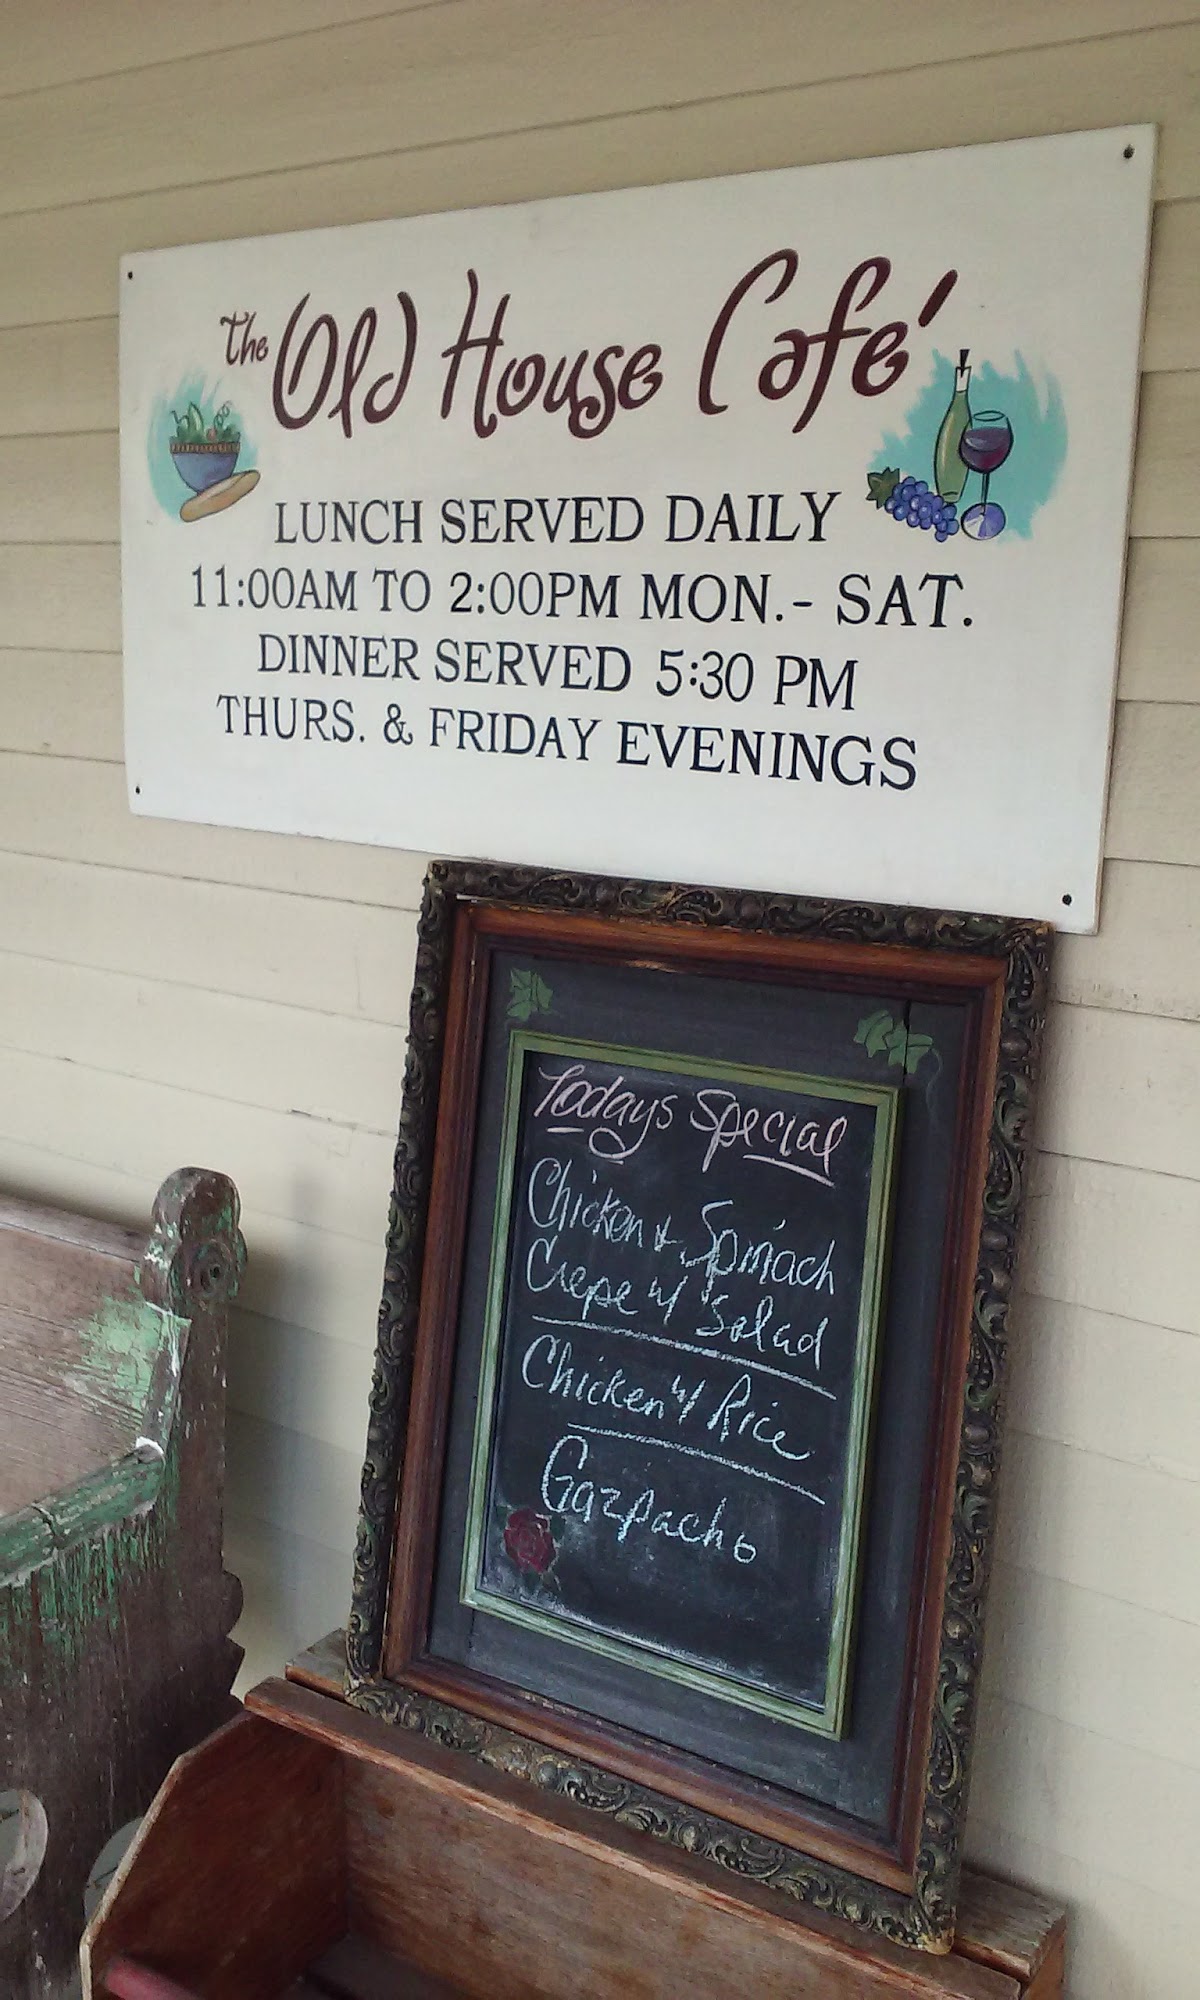 The Old House Café
LUNCH SERVED DAILY
11:00AM TO 2:00PM MON.- SAT.
DINNER SERVED 5:30 PM
THURS. & FRIDAY EVENINGS
Todays Special
Chicken & Spinach
Crepe w/ Salad
Chicken w/ Rice
Gazpacho